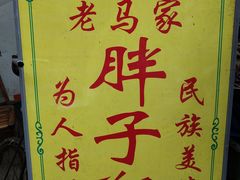 老马家
胖子
为人指
民族美